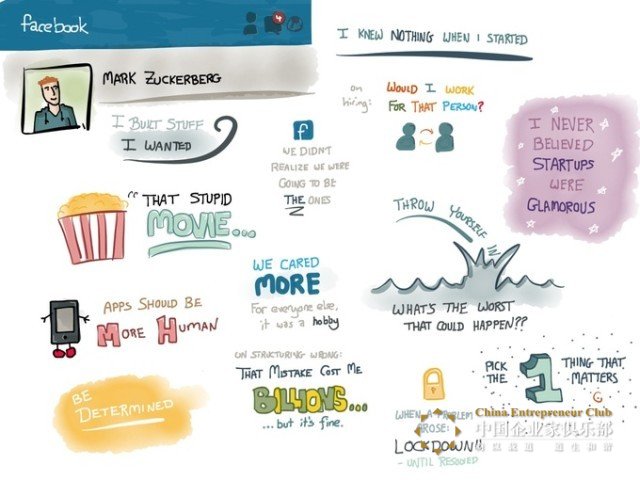 facebook
4
MARK ZUCKERBERG
I BUILT STUFF
I WANTED
"THAT STUPID
MOVIE...
APPS SHOULD BE
MORE HUMAN
BE
DETERMINED
f
WE DIDN'T
REALIZE WE WERE
GOING TO BE
THE ONES
WE CARED
MORE
For everyone else,
it was a hobby
ON STRUCTURING WRONG:
THAT MISTAKE COST ME
BILLIONS...
...but it's fine.
I KNEW NOTHING WHEN I STARTED
on
hiring:
WOULD I WORK
FOR THAT PERSON?
I NEVER
BELIEVED
STARTUPS
WERE
GLAMOROUS
THROW YOURSELF
IN
WHAT'S THE WORST
THAT COULD HAPPEN??
PICK
THE
1
THING THAT
MATTERS
WHEN A PROBLEM
AROSE:
LOCKDOWN!!
- UNTIL RESOLVED
China Entrepreneur Club
中国企业家俱乐部